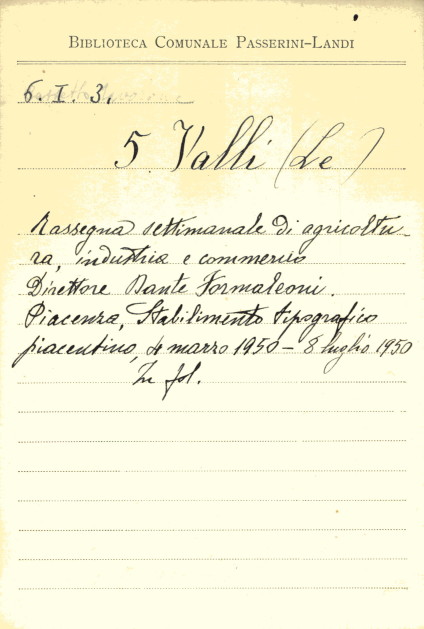 BIBLIOTECA COMUNALE PASSERINI-LANDI
6. I. 3.
5 Valli (Le)
Rassegna settimanale di agricoltu-
ra, industria e commercio
Direttore Dante Formaleoni.
Piacenza, Stabilimento tipografico
piacentino, 4 marzo 1950 - 8 luglio 1950
In fol.